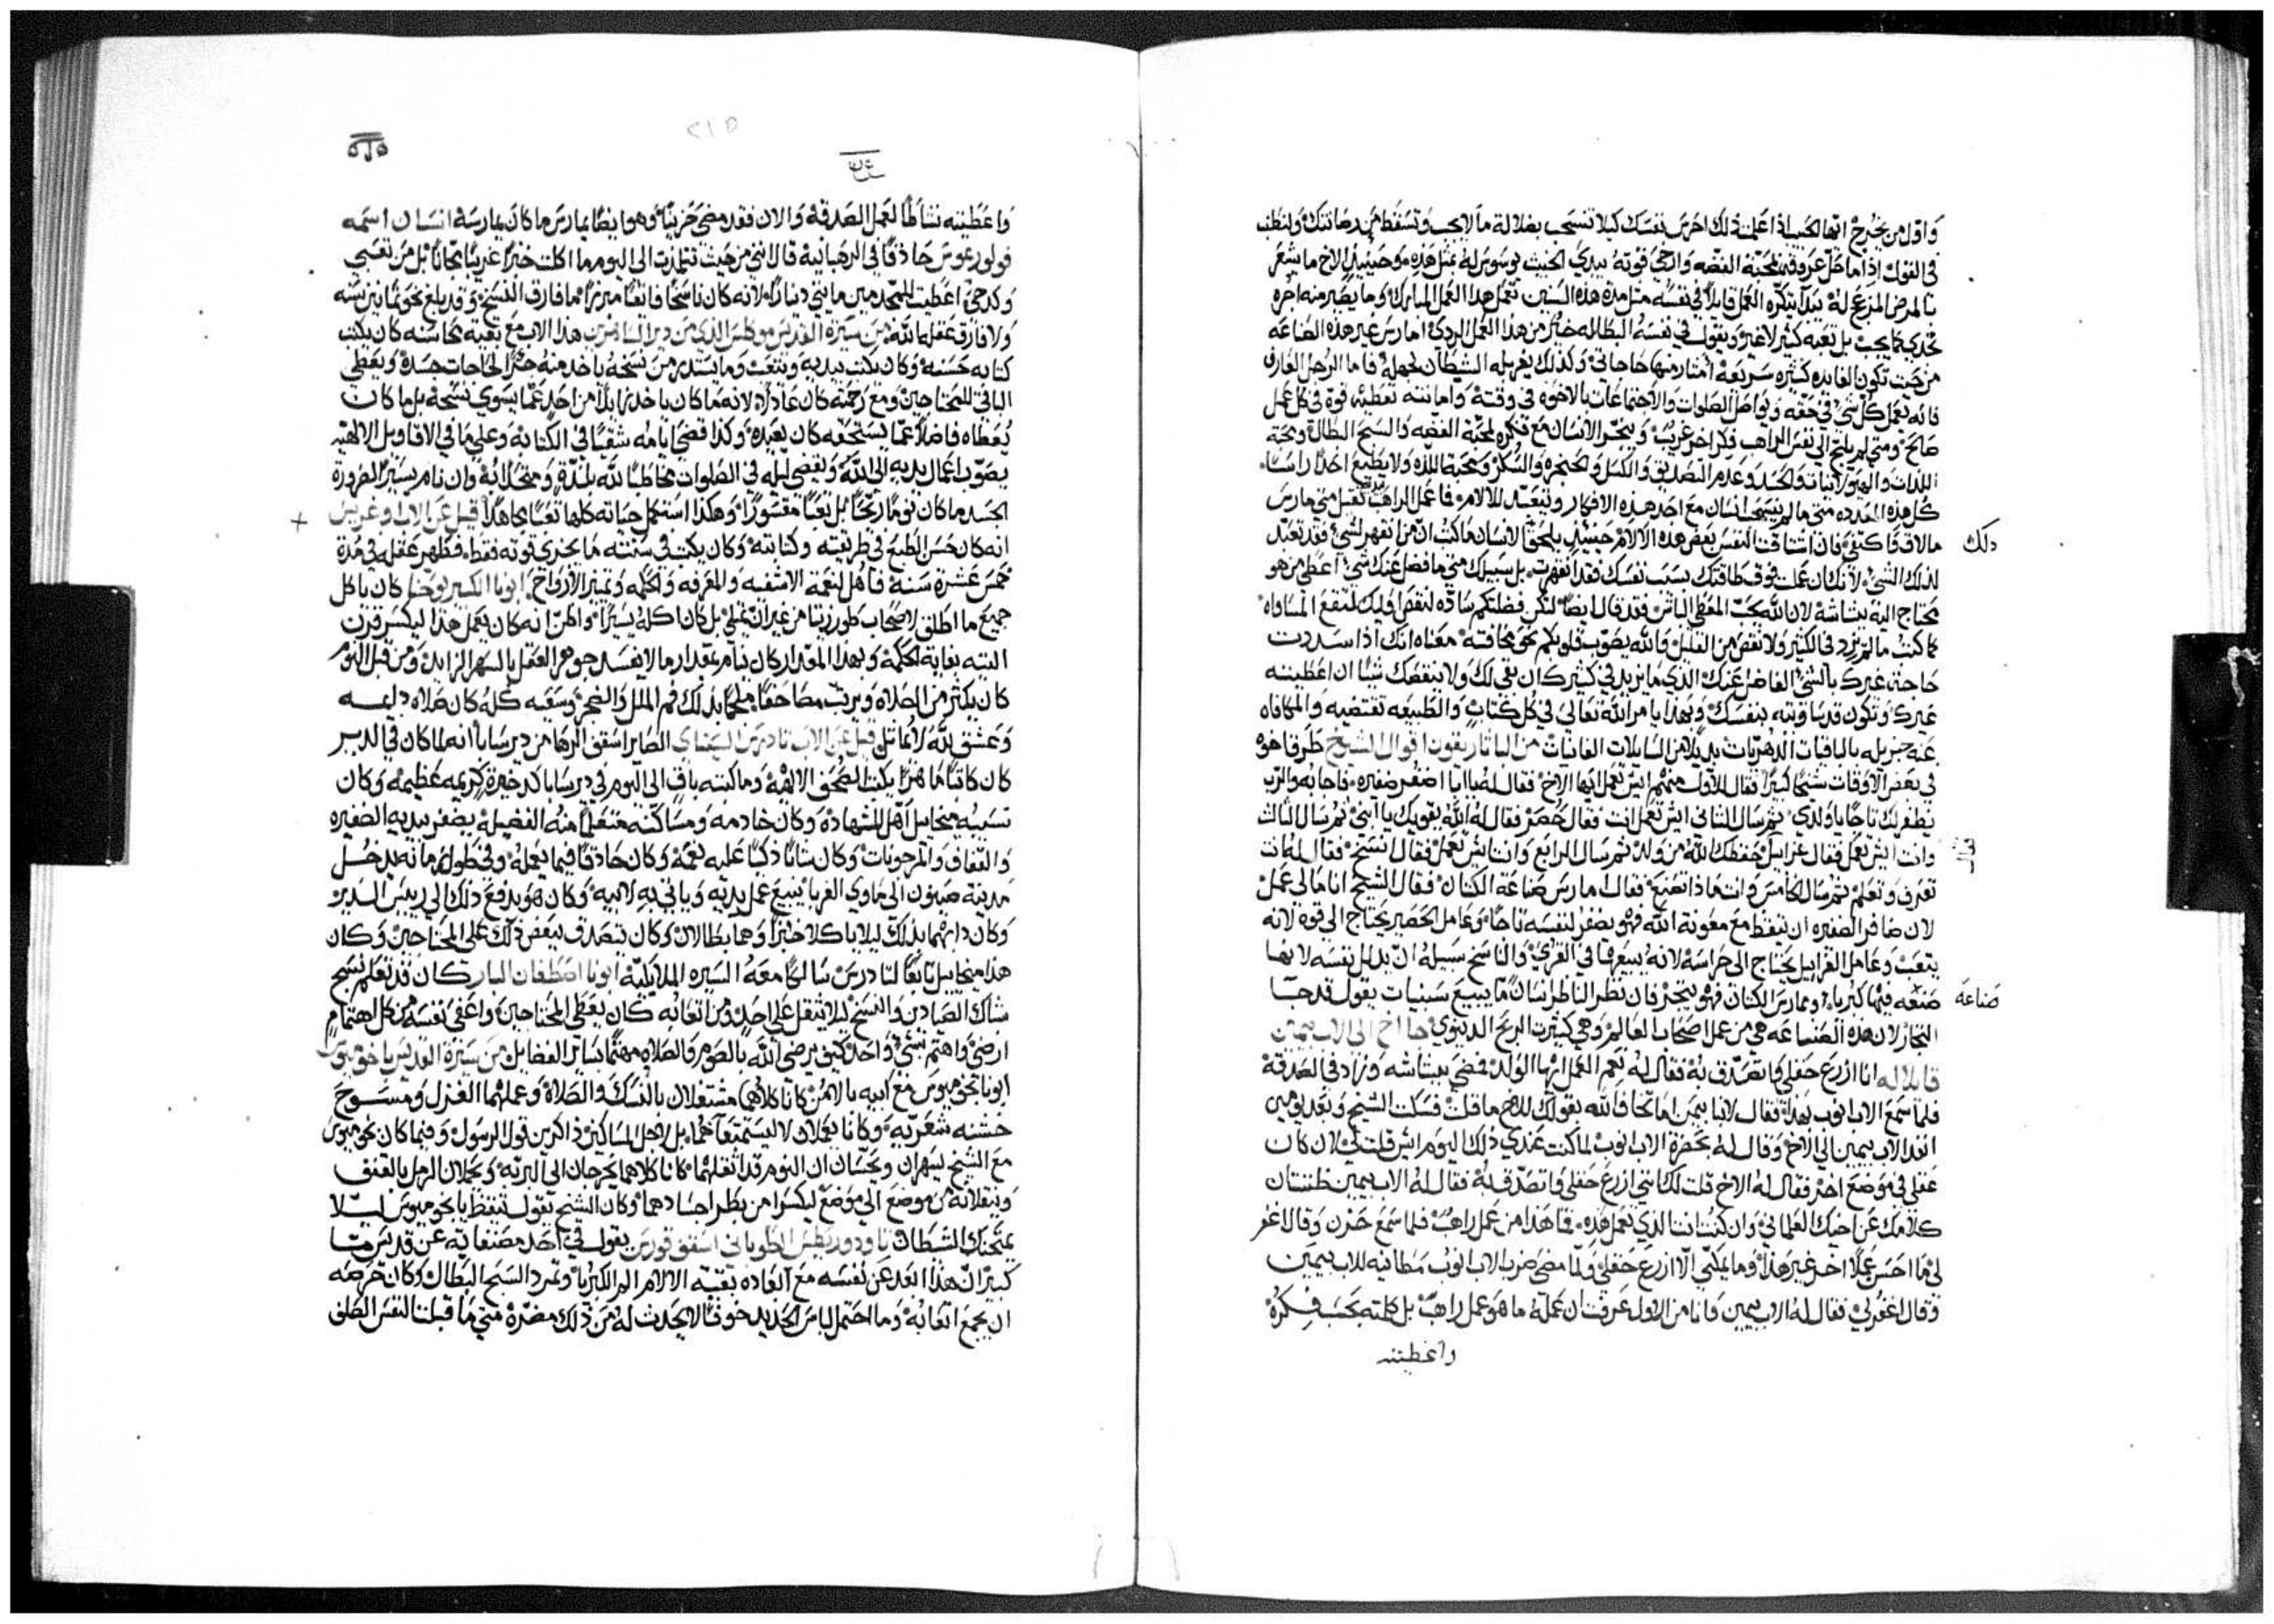 واقل من يخرج ايها الحبيب اذا علمت ذلك احرس نفسك كيلا تنسحب بضلالة ما لا يجب وتسقط من رهبانيتك ولنطنب
في القول اذا ما حل عروق محبة الفضه وارخى قوته بيدي الخبيث يوسوس له بمثل هذه وحينيذ الاخ ما شعر
بالمرض المزعج له يبدا يتكره العمل قايلا في نفسه مثل مدة هذه السنين تعمل هذا العمل المبارك وما يصير منه اجره
تجدي كما يجب بل تعبه كثير لا غير ويقول في نفسه البطاله خير من هذا العمل الردي امارس غير هذه الصناعه
من حيث تكون الفايده كثيره سريعه امتار منها حاجاتي وكذلك يغربله الشيطان لجهله فاما الرجل العارف
فانه يعمل كل شي في حقه ويواصل الصلوات والاجتماعات بالاخوه في وقته وامانته تعطيه قوة في كل عمل
صالح ومتى لم يلج الى نفس الراهب فكر اخر غريب ويتجر الانسان مع فكره لمحبة الفضه والسبح البطال ومحبة
اللذات والهزو والحسد وعدم التصديق والكسل والحنجره والسكر ومحبة اللذه ولا يطيع احدا راسا
كل هذه المعدده متى ما لم يتسجس انسان مع احد هذه الافكار ويتعبد للالام فاعمل الراهب تقبل متى مارس
ما لاق فاكتفى فان اشتاقت النفس بعض هذه الالام حينيذ يلحق الانسان ما كتب ان من انقهر لشي فقد تعبد
ذلك
لذلك الشي لانك ان عملت فوق طاقتك بسبب نفسك فقد انقهرت بل سبيلك متى ما فضل عنك شي اعطي من هو
محتاج اليه ببشاشه لان الله يحب المعطي الباش فقد قال ايضا لتكن فضلتكم سادة لنقص اوليك لتقع المساواه
كما كتب ما لم تزد في الكثير ولا نقص من القليل والله يصوب قلوبكم نحو مخافته معناه انك اذا سددت
حاجة غيرك بالشي الفاضل عنك الذي ما يزيد في كثيرك ان بقي لك ولا ينقصك شيا ان اعطيته
غيرك وتكون قد ساويته بنفسك وبهذا يامر الله تعالى في كل كتاب والطبيعه تقتضيه والمكافاه
عنه جزيله بالباقيات الدهريات بديلا من السايلات الفانيات من الباتاريقون اقوال الشيوخ طرقا هوه
في بعض الاوقات شيخا كبيرا فقال للاول منهم ايش تعمل ايها الاخ فقال له ايا ابا اضفر ضفيره فاجابه والرب
يضفر لك تاجا يا ولدي ثم سال الثاني ايش تعمل انت فقال حصر فقال له الله يقويك يا ابني ثم سال الثالث
وانت ايش تعمل فقال غرابيل يحفظك الله من ولد ثم سال الرابع وانت ايش تعمل فقال انسخ فقال له انت
تعرف وتعلم ثم سال الخامس وانت ماذا تصنع فقال امارس صناعة الكتان فقال الشيخ انا ما لي عمل
لان ضافر الضفيره ان تيقظ مع معونة الله فهو يضفر لنفسه تاجا وعامل الحصير يحتاج الى قوة لانه
يتعب وعامل الغرابيل يحتاج الى حراسة لانه يبيعها في القرى والناسخ سبيله ان يذلل نفسه لانها
صنعه فيها كبرياء وممارس الكتان فهو يتجر فان نظر الناظر انسانا يبيع سبنيات يقول قد جا
صناعة
التجار لان هذه الصناعه هي من عمل اصحاب العالم وهي كثيرة الربح الدينوي جا اخ الى الاب بيمين
قايلا له انا ازرع حقلي واتصدق به فقال له نعم العمل ايها الولد فمضى ببشاشه وزاد في الصدقة
فلما سمع الاب انوب بهذا فقال لانبا بيمين اما تخاف الله بقولك للاخ ما قلت فسكت الشيخ وبعد يومين
انفذ الاب بيمين الى الاخ وقال له بحضرة الاب انوب لما كنت عندي ذلك اليوم ايش قلت لي لان كان
عقلي في موضع اخر فقال له الاخ قلت لك انني ازرع حقلي واتصدق به فقال له الاب بيمين ظننت ان
كلامك عن اخيك العلماني وان كنت انت الذي تعمل هذه فما هذا من عمل راهب فلما سمع حزن وقال اغفر
لي ما احسن عملا اخر غير هذا وما يمكنني الا ازرع حقلي ولما مضى ضرب الاب انوب مطانيه للاب بيمين
وقال اغفر لي فقال له الاب بيمين وانا من الاول عرفت ان عمله ما هو عمل راهب بل كلمته بحسب فكره
واعطيته
٥١٥
واعطيته نشاطا لعمل الصدقة والان فقد مضى حزينا وهو ايضا يمارس ما كان يمارسه انسان اسمه
فولورغوس حاذقا في الرهبانية قال انني من حيث تتلمذت الى اليوم ما اكلت خبزا غريبا مجانا بل من تعبي
وكدحي اعطيت للمتحدمين مايتي دينارا لانه كان ناسخا فايقا مبرزا ما فارق النسخ وقد بلغ نحو ثمانين سنه
ولا فارق عقله الله من سيرة القديس مركلس الذي من دير الساهرين هذا الاب مع بقية محاسنه كان يكتب
كتابه حسنه وكان يكتب بيديه ويتعب وما يستدير من نسخه ياخذ منه جزا لحاجات جسده ويعطي
الباقي للمحتاجين ومع رحمته كان عادلا لانه ما كان ياخذ زايدا من احد عما يسوى نسخه بل ما كان
يعطاه فاضلا عما يستحقه كان يعيده وكذا قضى ايامه شقيا في الكتابة وعلى ما في الاقاويل الالهيه
يصوب اعمال يديه الى الله ويقضي ليله في الصلوات مخاطبا لله بلذة ومتحدثا له وان نام يسيرا لضرورة
الجسد ما كان نوما ريحا بل تعبا مقشورا وهكذا استكمل حياته كلها تعبا مجاهدا قيل عن الاب اوغريس
+
انه كان حسن الطبع في طريقته وكتابته وكان يكتب في سنته ما يجزي قوته فقط فطهر عقله في مدة
خمس عشرة سنة فاهل لنعمة الاستفيه والمعرفه والحكمه وتمييز الارواح ابونا الكبير يوحنا كان ياكل
جميع ما اطلق لاصحاب طورزيتا من غير ان يمتلي بل كان اكله يسيرا واظن انه كان يعمل هذا ليكسر قرن
التيه بغاية الحكمة وبهذا المقدار كان ينام بمقدار ما لا يفسد جوهر العقل بالسهر الزايد ومن قبل النوم
كان يكثر من الصلاه ويرتب مصاحفا ملجما بذلك فم الملل والضجر وسعيه كله كان صلاه دايمه
وعشق لله لا يماثل قيل عن الاب تادرس السيناي الصاير اسقف الرها من دير سابا انه لما كان في الدير
كان كاتبا ماهرا يكتب الصحف الالهيه وما كتبه باق الى اليوم في دير سابا كذخيرة كريمه عظيمه وكان
نسيبه ميخاييل اهل للشهادة وكان خادمه ومساكنه متعلما منه الفضيله يضفر بيديه الضفيره
والقفاف والمرجونات وكان شابا ذكيا عليه نعمة وكان حاذقا فيما يعمله وفي طول زمانه يدخل
مدينة صهيون الى ماوي الغربا يبيع عمل يديه وياتي به لابيه وكان هو يدفع ذلك الى رييس الدير
وكان دابهما بذلك ليلا ياكلا خبزا وهما بطالان وكان يتصدق ببعض ذلك على المحتاجين وكان
هذا ميخاييل تابعا لتادرس سالكا معه السيره الملايكيه ابونا اصطفان البار كان قد تعلم نسج
شباك الصيادين والنسخ ليلا يثقل على احد ومن اتعابه كان يعطي المحتاجين واعفى نفسه من كل اهتمام
ارضي واهتم بشي واحد كيف يرضي الله بالصوم والصلاه مهتما بساير الفضايل من سيرة القديس باخوميوس
ابونا بخوميوس مع ابيه بالامون كانا كلاهما مشتغلان بالنسك والصلاه وعملهما الغزل ومسوح
خشنه شعريه وكانا يعملان لا ليستمتعا هما بل لاجل المساكين ذاكرين قول الرسول وفيما كان بخوميوس
مع الشيخ يسهران ويحسان ان النوم قد اثقلهما كانا كلاهما يخرجان الى البريه ويحملان الرمل بالقفف
وينقلانه من موضع الى موضع ليكسرا من بطر اجسادهما وكان الشيخ يقول تيقظ يا بخوميوس ليلا
يمتحنك الشيطان تاودوريطس الطوباني اسقف قورس يقول في احد مصنفاته عن قديس ما
كبير ان هذا ابعد عن نفسه مع العاده بقية الالام الم الكبريا وتمرد السبح البطال وكان حرصه
ان يجمع اتعابه وما احتمل لباس الحديد خوفا لا يحدث له من ذلك مضرة متى ما قبلت النفس الصلف